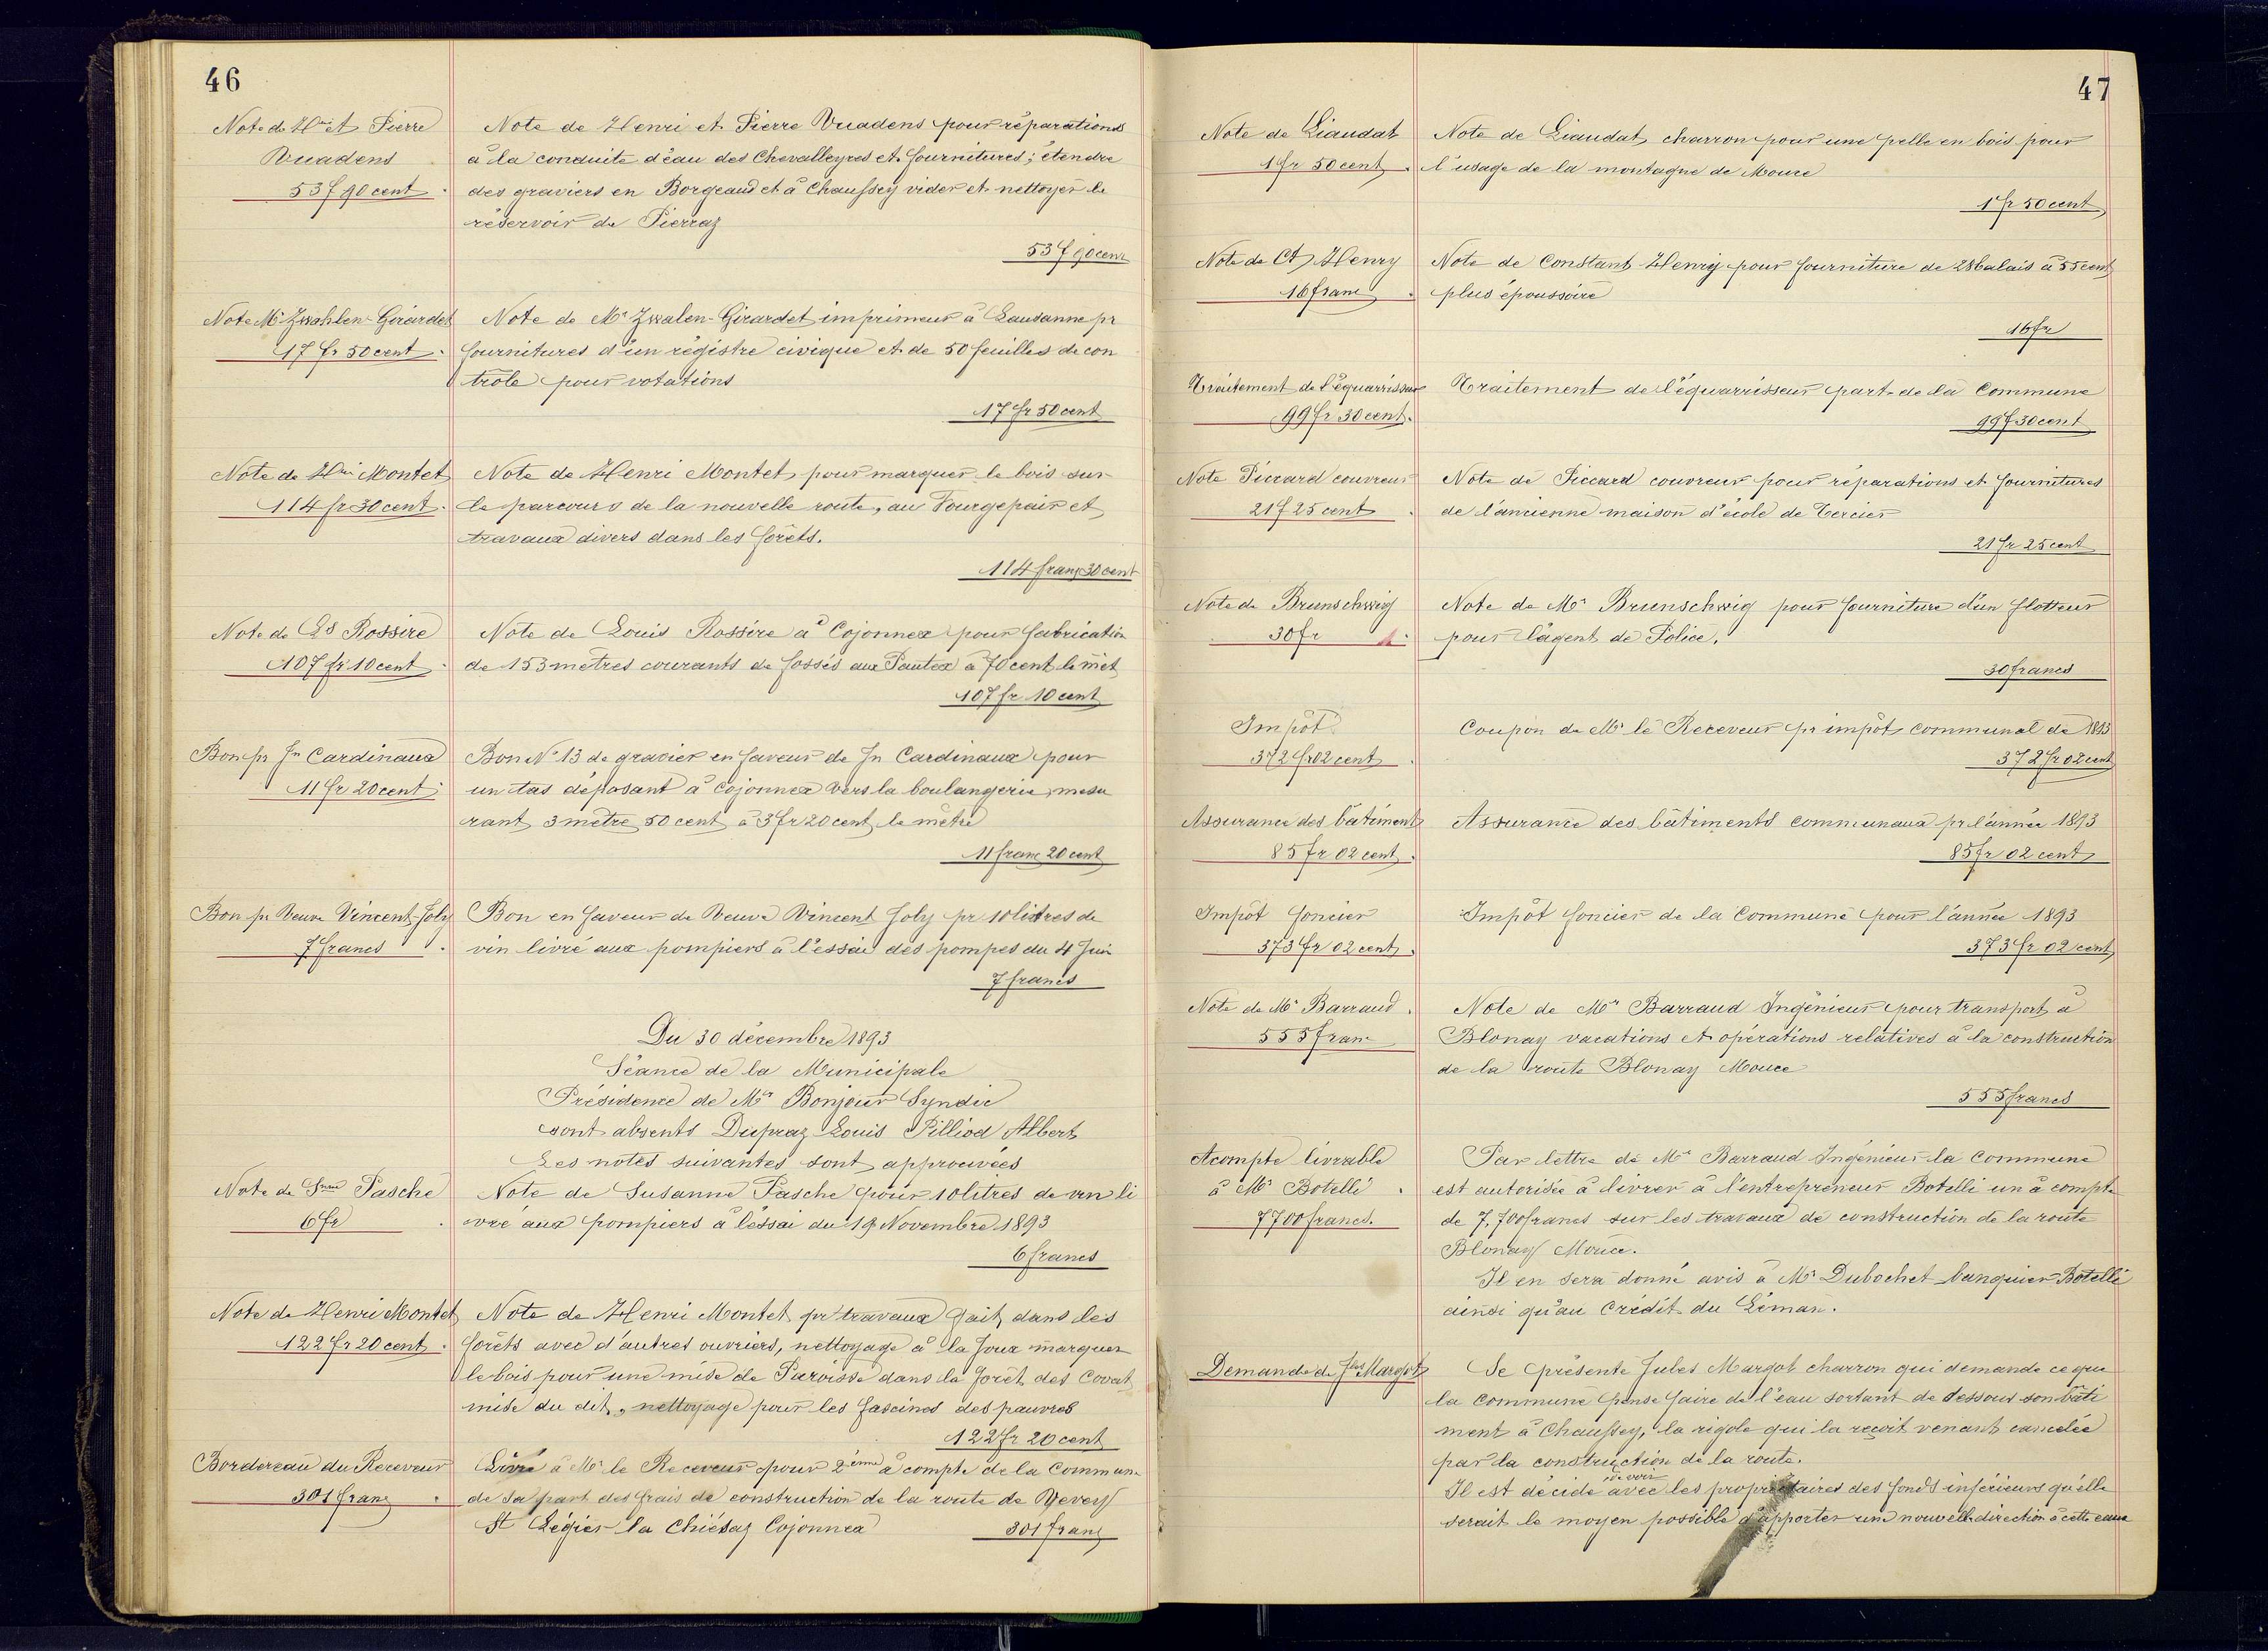 46
Note de Hri et Pierre
Vuadens
53 f 90 cent
Note de Henri et Pierre Vuadens pour réparations
à la conduite d'eau des Chevalleyres et fournitures; étendre
des graviers en Borgeaud et à Chaussey vider et nettoyer le
réservoir de Pierraz
53 f 90 cent
Note Mr Zwahlen-Girardet
17 fr 50 cent
Note de Mr Zwalen-Girardet imprimeur à Lausanne pr
fournitures d'un régistre civique et de 50 feuilles de con
trôle pour votations
17 fr 50 cent
Note de Hri Montet
114 fr 30 cent
Note de Henri Montet pour marquer le bois sur
le parcours de la nouvelle route, au Fourgepair et
travaux divers dans les forêts.
114 franc 30 cent
Note de Ls Rossire
107 fr 10 cent
Note de Louis Rossire à Cojonnex pour fabrication
de 153 mètres courants de fossés aux Pautex à 70 cent le mèt
107 fr 10 cent
Bon pr Jn Cardinaux
11 fr 20 cent
Bon No 13 de gravier en faveur de Jn Cardinaux pour
un tas déposant à Cojonnex vers la boulangerie, mesu
rant 3 mètre 50 cent à 3 fr 20 cent le mètre
11 franc 20 cent
Bon pr Veuve Vincent-Joly
7 francs
Bon en faveur de Veuve Vincent Joly pr 10 litres de
vin livré aux pompiers à l'essai des pompes du 4 Juin
7 francs
Du 30 décembre 1893
Séance de la Municipale
Présidence de Mr Bonjour Syndic
sont absents Dupraz Louis Pilliod Albert
Les notes suivantes sont approuvées
Note de Snne Pasche
6 fr
Note de Susanne Pasche pour 10 litres de vin li
vré aux pompiers à l'essai du 19 Novembre 1893
6 francs
Note de Henri Montet
122 fr 20 cent
Note de Henri Montet pr travaux fait dans les
forêts avec d'autres ouvriers, nettoyage à la Joux marquer
le bois pour une mise de Paroisse dans la forêt des Covat
mise du dit, nettoyage pour les fascines des pauvres
122 fr 20 cent
Bordereau du Receveur
301 franc
Livré à Mr le Receveur pour 2ème à compte de la Commune
de sa part des frais de construction de la route de Vevey
St Légier-la Chiésaz Cojonnex
301 franc
47
Note de Liaudat
1 fr 50 cent
Note de Liaudat, charron pour une pelle en bois pour
l'usage de la montagne de Mouce
1 fr 50 cent
Note de Ct Henry
16 franc
Note de Constant Henry pour fourniture de 28 balais à 55 cent
plus époussoire
16 fr
Traitement de l'équarrisseur
99 fr 30 cent.
Traitement de l'équarrisseur part de la Commune
99 f 30 cent
Note Piccard couvreur
21 f 25 cent
Note de Piccard couvreur pour réparations et fournitures
de l'ancienne maison d'école de Tercier
21 fr 25 cent
Note de Brunschwig
30 fr
Note de Mr Brunschwig pour fourniture d'un flotteur
pour l'agent de Police.
30 francs
Impôt
372 fr 02 cent
Coupon de Mr le Receveur pr impôt communal de 1893
372 fr 02 cent
Assurance des bâtiments
85 fr 02 cent
Assurance des bâtiments communaux pr l'année 1893
85 fr 02 cent
Impôt foncier
373 fr 02 cent
Impôt foncier de la Commune pour l'année 1893
373 fr 02 cent
Note de Mr Barraud
555 franc
Note de Mr Barraud Ingénieur pour transport à
Blonay vacations et opérations relatives à la construction
de la route Blonay Mouce
555 francs
Acompte livrable
à Mr Botelli
7700 francs.
Par lettre de Mr Barraud Ingénieur la Commune
est autorisée à livrer à l'entrepreneur Botelli un à compte
de 7,700 francs sur les travaux de construction de la route
Blonay Mouce.
Il en sera donné avis à Mr Dubochet banquier Botelli
ainsi qu'au Crédit du Léman.
Demande de Jles Margot
Se présente Jules Margot charron qui demande ce que
la commune pense faire de l'eau sortant de dessous son bâti
ment à Chaussey, la rigole qui la reçoit venant cancelée
par la construction de la route.
de voir
Il est décidé avec les propriétaires des fonds inférieurs qu'elle
serait le moyen possible d'apporter une nouvelle direction à cette eau